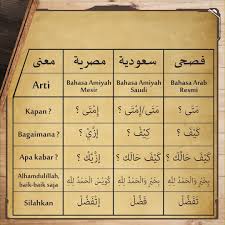 معنى مصرية سعودية فصحى
Arti Bahasa Amiyah Mesir Bahasa Amiyah Saudi Bahasa Arab Resmi
Kapan ? إِمْتَى ؟ مَتَى/إِمْتَى ؟ مَتَى ؟
Bagaimana ? إِزَيْ ؟ كَيْفْ ؟ كَيْفَ ؟
Apa kabar ? إِزَيَّكْ ؟ كَيْفْ حَالَكْ ؟ كَيْفَ حَالُكَ ؟
Alhamdulillah, baik-baik saja كُوَيِّسْ الْحَمْدُ لِلّٰهِ بِخَيْرْ وَالْحَمْدُ لِلّٰهِ بِخَيْرٍ وَالْحَمْدُ لِلّٰهِ
Silahkan إِتْفَضَّلْ تَفَضَّلْ